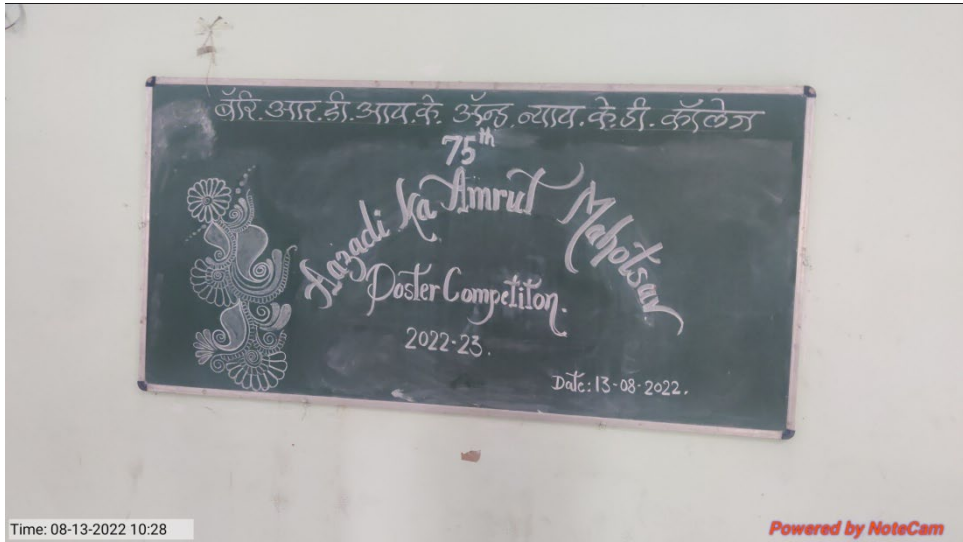 बॅरि.आर.डी.आय.के. ॲन्ड.न्याय.के.डी.कॉलेज
75th
Aazadi Ka Amrut Mahotsav
Poster Competiton.
2022-23.
Date: 13-08-2022.
Time: 08-13-2022 10:28
Powered by NoteCam